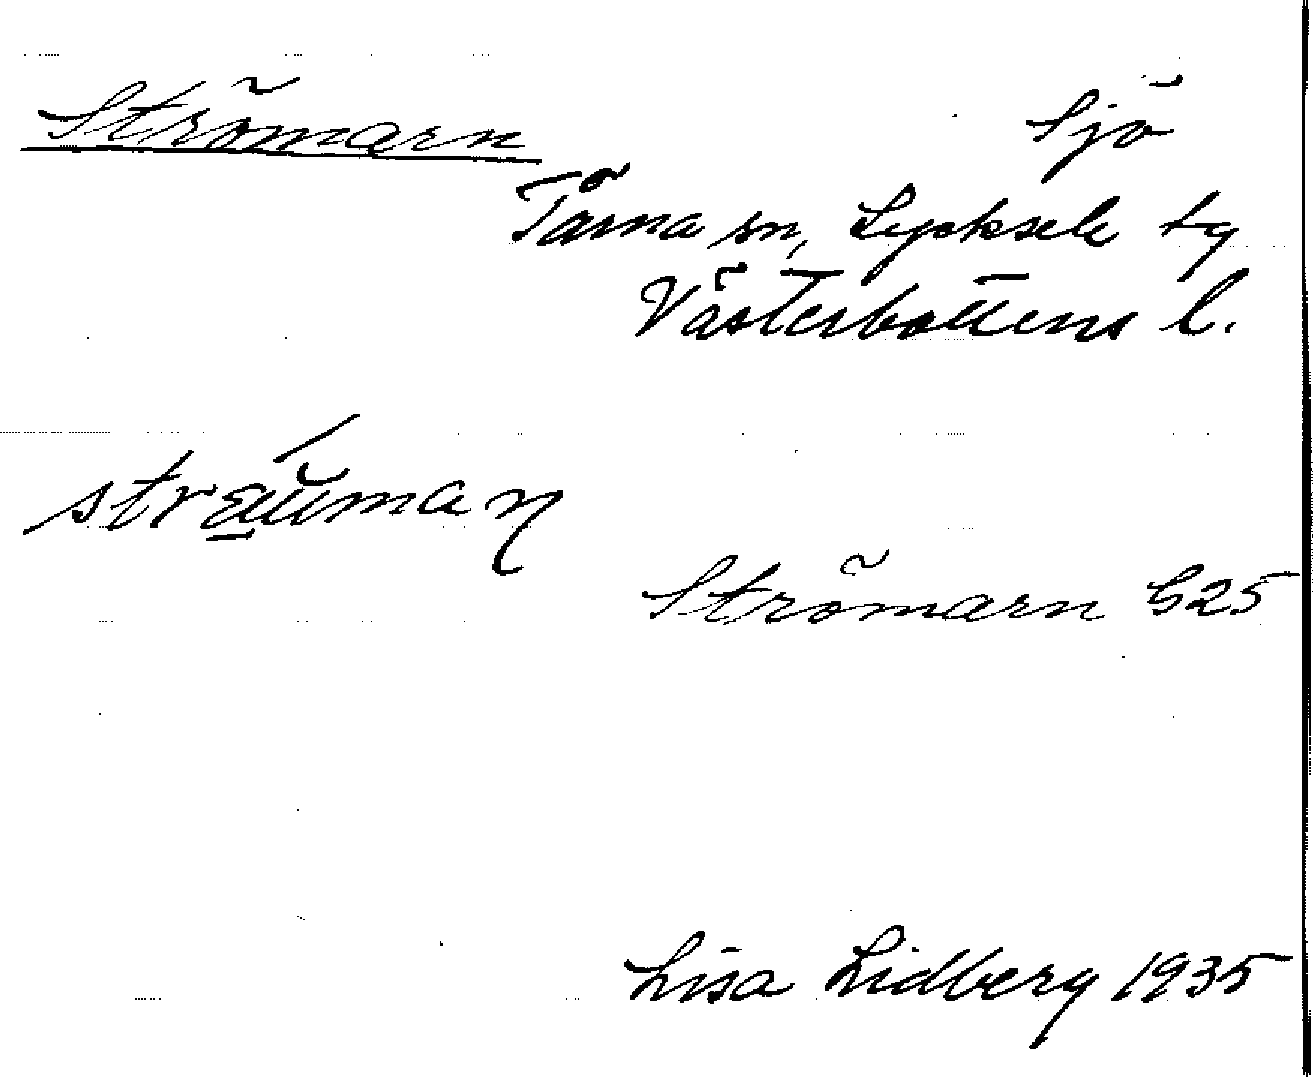 Strömarn Sjö
Tärna sn, Lycksele tg
Västerbottens l.
Strömarn G25
Lisa Lidberg 1935